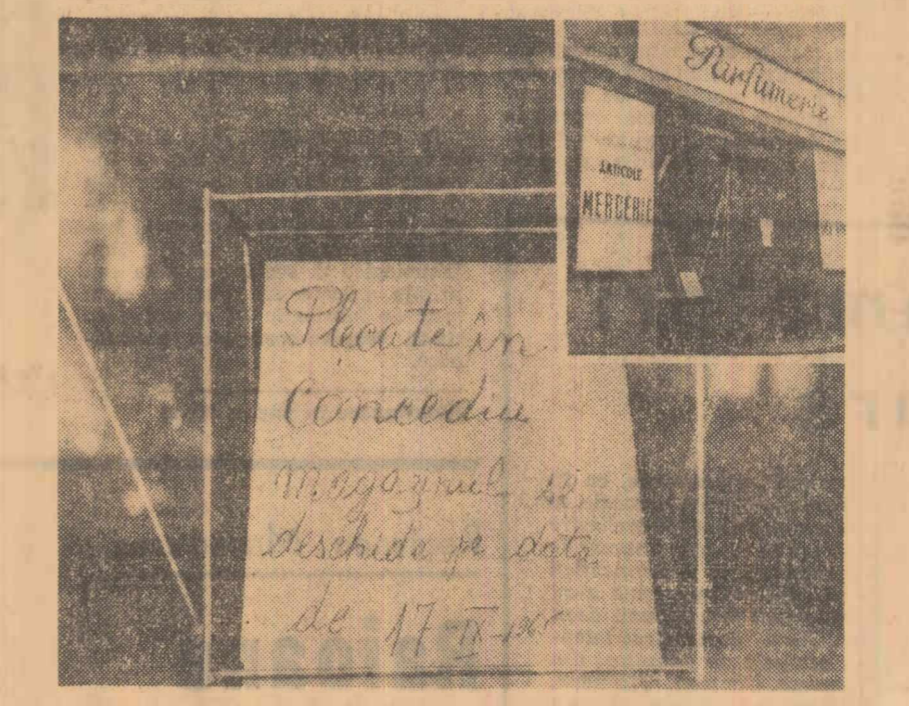 Parfumerie
ARTICOLE
MERCERIE
Plecate în
Concediu
magaznul se
deschide pe data
de 17-IX-1965